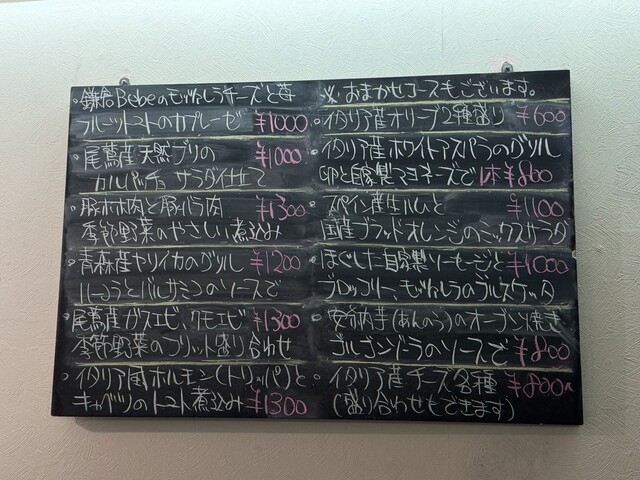 ・鎌倉Bebeのモッツァレラチーズと苺
フルーツトマトのカプレーゼ ¥1000
・尾鷲産天然ブリの ¥1000
カルパッチョ サラダ仕立て
・豚ホホ肉と豚バラ肉 ¥1300
季節野菜のやさしい煮込み
・青森産ヤリイカのグリル ¥1200
とバルサミコのソースで
尾鷲産ガスエビ、クモエビ ¥1300
季節野菜のフリット盛り合わせ
・イタリア風ホルモン(トリッパ)と
キャベツのトマト煮込み ¥1300
※おまかせコースもございます。
・イタリア産オリーブ2種盛り ¥600
・イタリア産ホワイトアスパラのグリル
卵と自家製マヨネーズで 1本¥800
・スペイン産生ハムと ¥1100
国産ブラッドオレンジのミックスサラダ
・ほぐした自家製ソーセージと ¥1000
ブロッコリー、モッツァレラのブルスケッタ
・安納芋(あんのう)のオーブン焼き
ゴルゴンゾーラのソースで ¥800
・イタリア産チーズ各種 ¥800〜
(盛り合わせもできます)